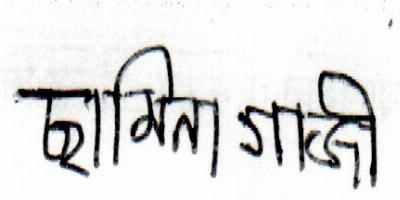 ছামিনা গাজী